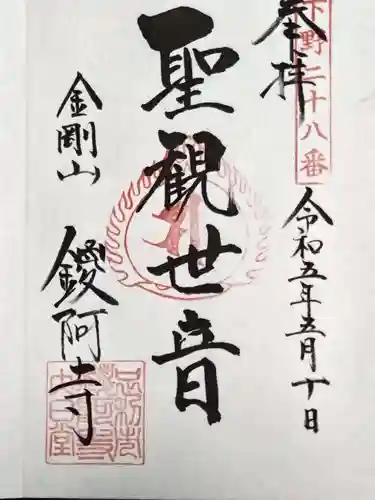 奉拝
下野二十八番
令和五年五月十日
聖観世音
金剛山
鑁阿寺